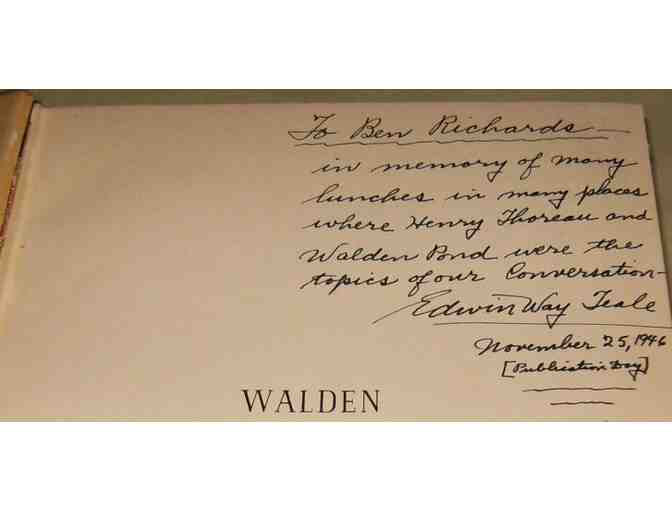 To Ben Richards —
in memory of many
lunches in many places
where Henry Thoreau and
Walden Pond were the
topics of our Conversation -
Edwin Way Teale
November 25, 1946
[Publication Day]
WALDEN